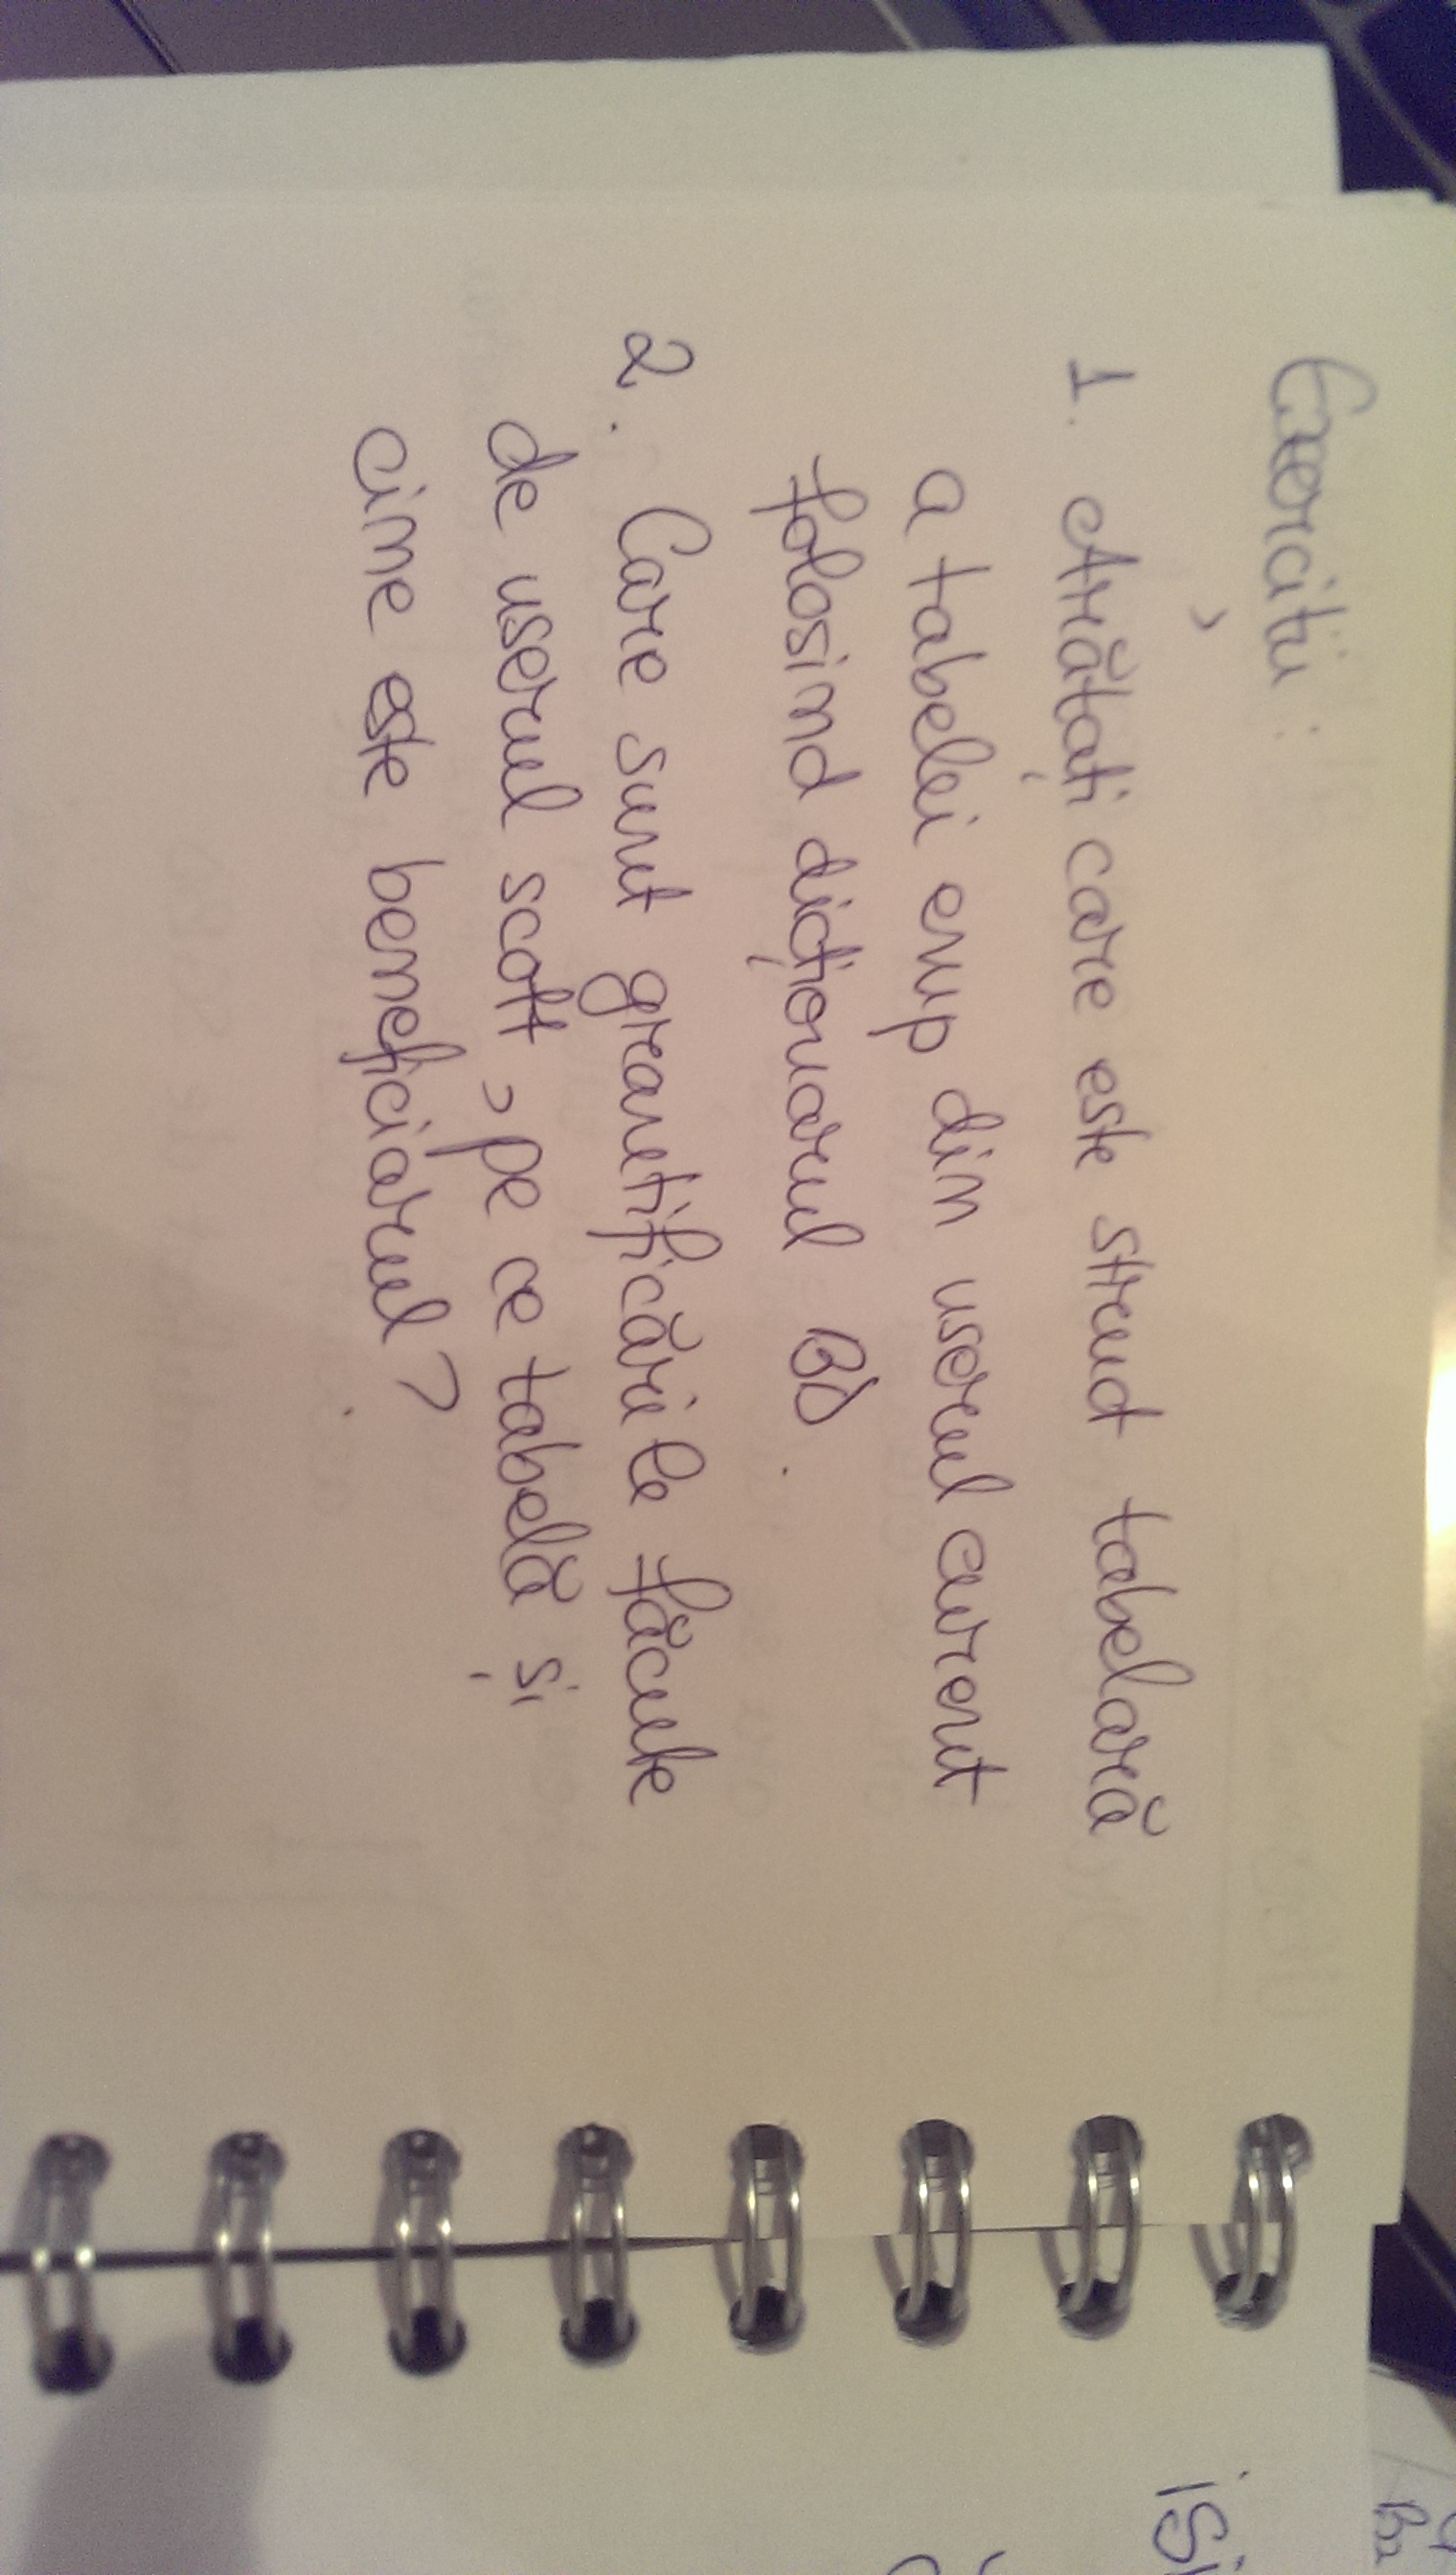 Exerciții:
1. Arătați care este struct tabelară
a tabelei emp din userul curent
folosind dicționarul BD.
2. Care sunt grantificările făcute
de userul scott, pe ce tabelă și
cine este beneficiarul?